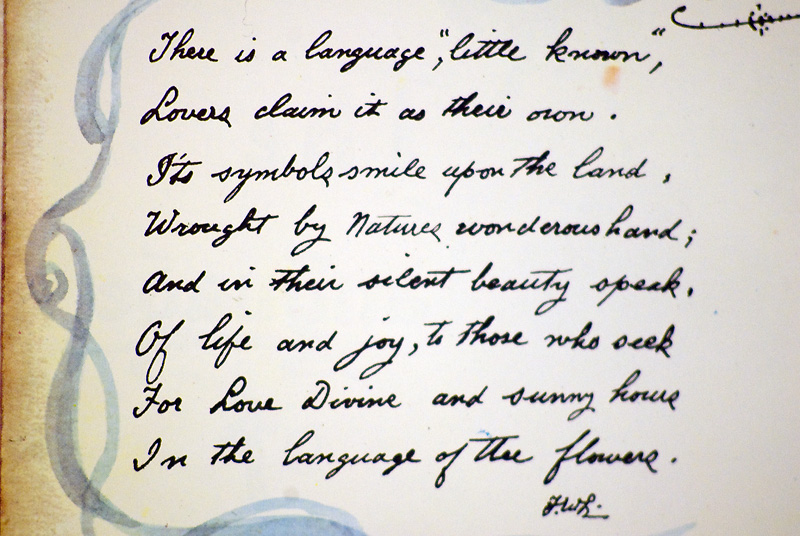 There is a language ", little known",
Lovers claim it as their own.
It's symbols smile upon the land,
Wrought by Natures wonderous hand;
And in their silent beauty speak,
Of life and joy, to those who seek
For Love Divine and sunny hours
In the language of the flowers.